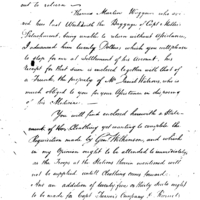 out to return
Thomas Martin Wiggins who ar
ived here last Week with the Baggage of Capt Millers
Detachment, being unable to return without assistance,
I advanced him twenty Dollars which you will please
to stop for me at Settlement of his account. his
receipt for that sum is enclosed together with that of
a Trunk the property of Mr. Daniel Holmes, who is
much obliged to you for your Attention in the
of his
You will find enclosed herewith a State
ment of the Clothing yet wanting to complete the
Requisition made by Genl Wilkinson, and which
in my Opinion ought to be attended to immediately,
as the Troops at the Stations therein mentioned will
not be supplied until Clothing comes forward
And an addition of twenty five or Thirty Suits ought
to be made for Capt Company &